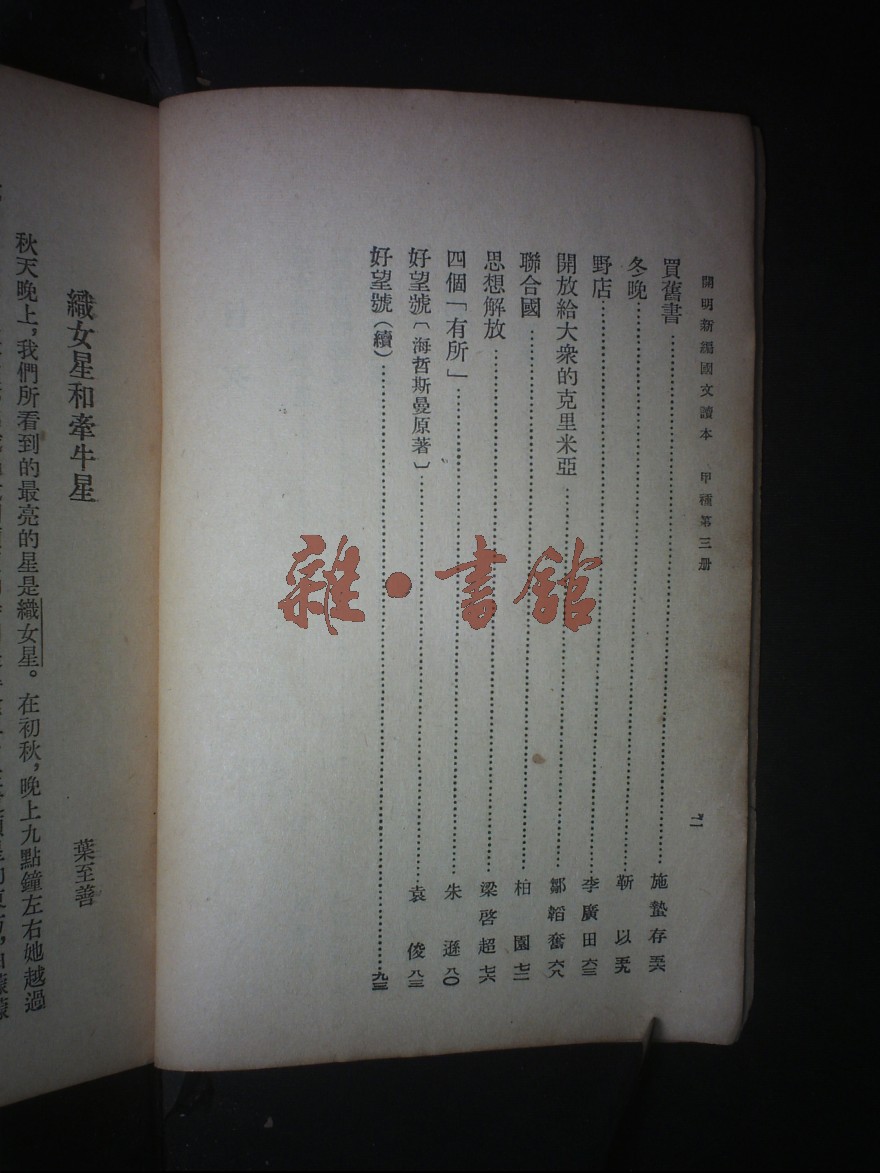 開明新編國文讀本 甲種第三册
二
買舊書……施蟄存 五六
冬晚……靳以 五九
野店……李廣田 六三
開放給大衆的克里米亞……鄒韜奮 六八
聯合國……柏園 七二
思想解放……梁啓超 七六
四個「有所」……朱遜 八〇
好望號〔海哲斯曼原著〕……袁俊 八三
好望號(續)……九三
雜·書館
織女星和牽牛星
葉至善
秋天晚上,我們所看到的最亮的星是織女星。在初秋,晚上九點鐘左右她越過